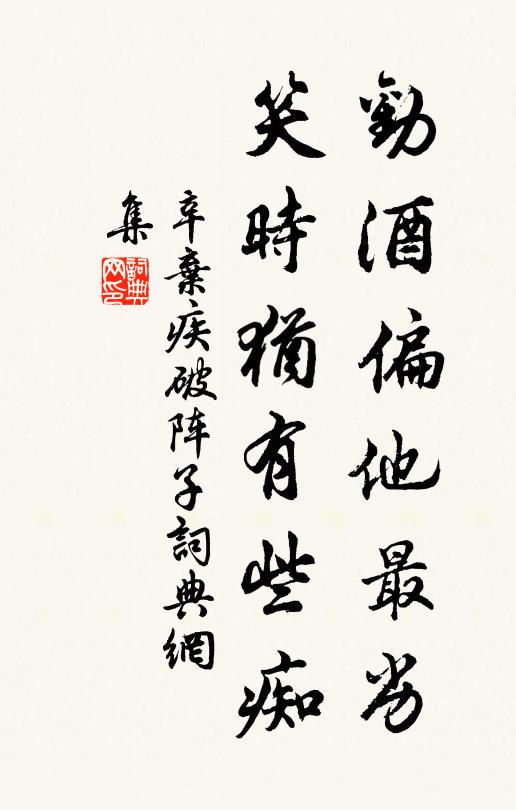 勸酒偏他最劣
笑時猶有些痴
辛棄疾破阵子詞典網
集
詞典网印